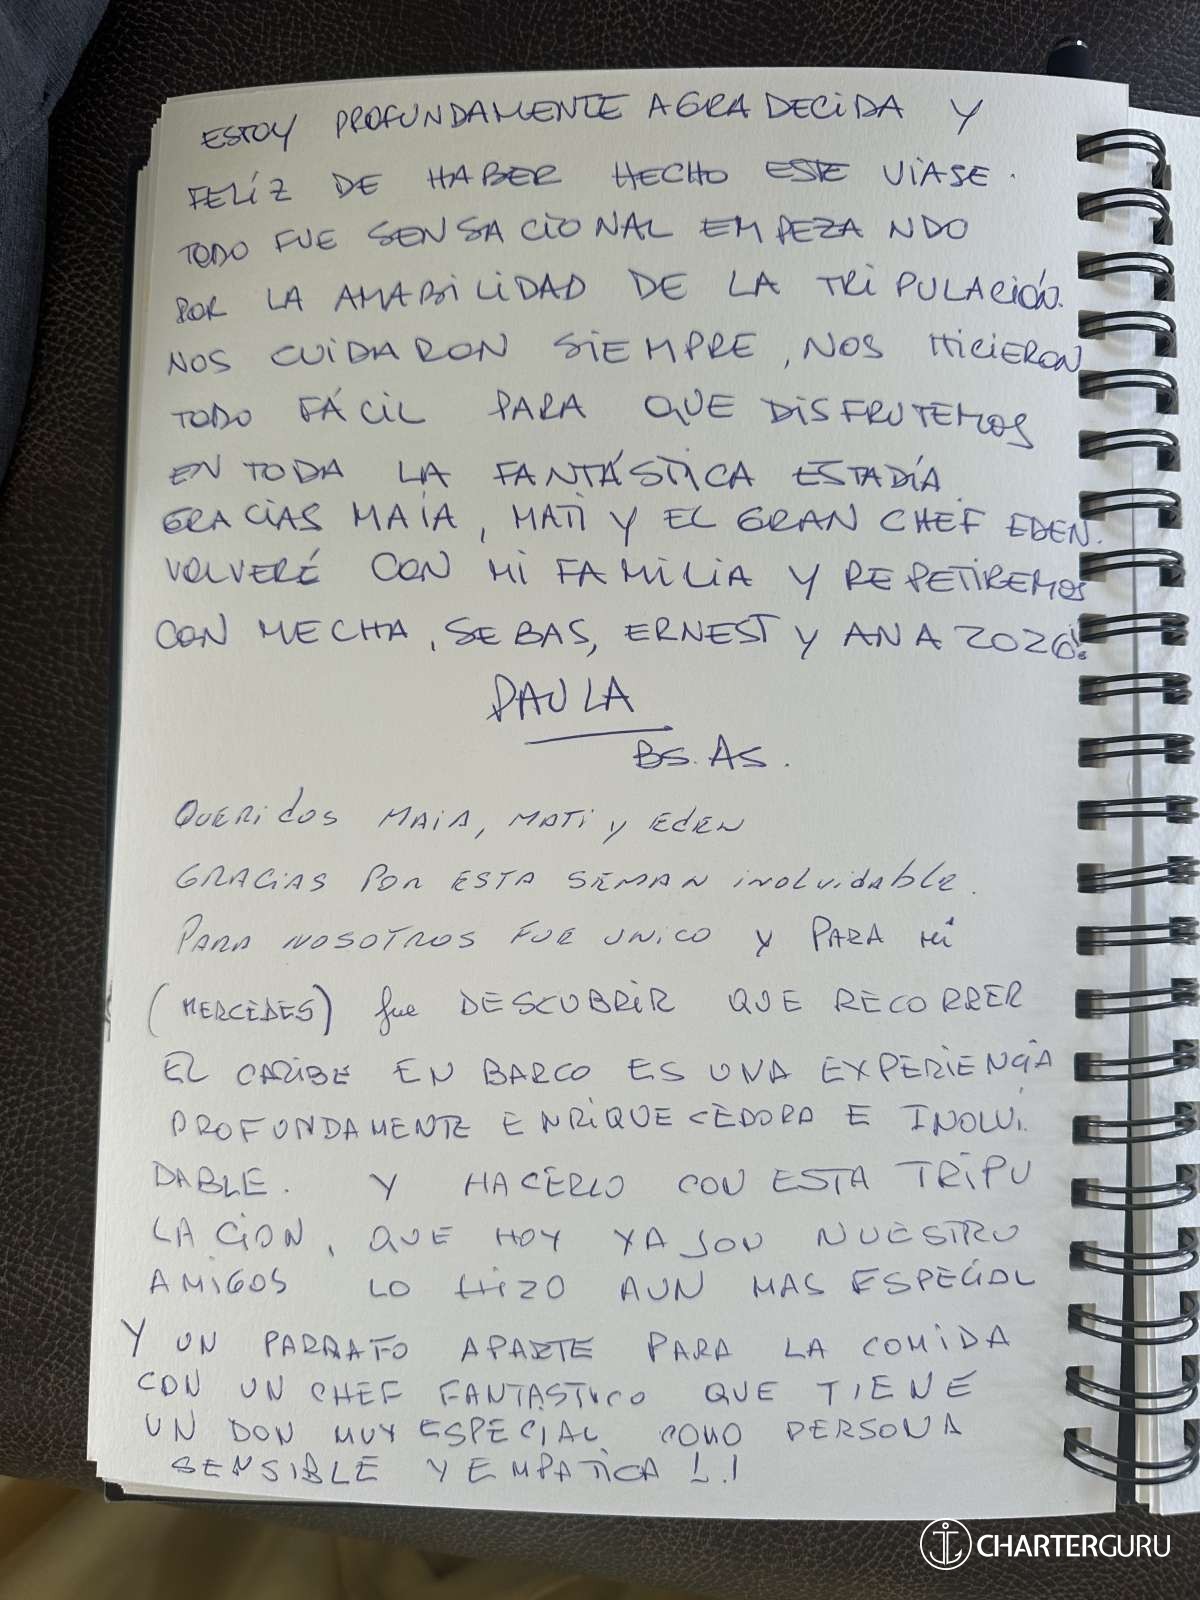 ESTOY PROFUNDAMENTE AGRADECIDA Y
FELÍZ DE HABER HECHO ESTE VIAJE.
TODO FUE SENSACIONAL EMPEZANDO
POR LA AMABILIDAD DE LA TRIPULACIÓN.
NOS CUIDARON SIEMPRE, NOS HICIERON
TODO FÁCIL PARA QUE DISFRUTEMOS
EN TODA LA FANTÁSTICA ESTADÍA.
GRACIAS MAIA, MATI Y EL GRAN CHEF EDEN.
VOLVERÉ CON MI FAMILIA Y REPETIREMOS
CON MECHA, SEBAS, ERNEST Y ANA 2026!
PAULA
BS. AS.
QUERIdOS MAIA, MATI y EdEN
GRACIAS POR ESTA SEMAN INOLVIdAblE.
PARA NOSOTROS FUE UNICO Y PARA MI
(MERCEDES) fue DESCUBRIR QUE RECORRER
EL CARIBE EN BARCO ES UNA EXPERIENCIA
PROFUNDAMENTE ENRIQUECEDORA E INOLVI
DABLE. Y HACERLO CON ESTA TRIPU
LACION, QUE HOY YA SON NUESTRO
AMIGOS LO HIZO AUN MAS ESPECIAL
Y UN PARRAFO APARTE PARA LA COMIDA
CON UN CHEF FANTASTICO QUE TIENE
UN DON MUY ESPECIAL COMO PERSONA
SENSIBLE Y EMPATICA !.!
CHARTERGURU